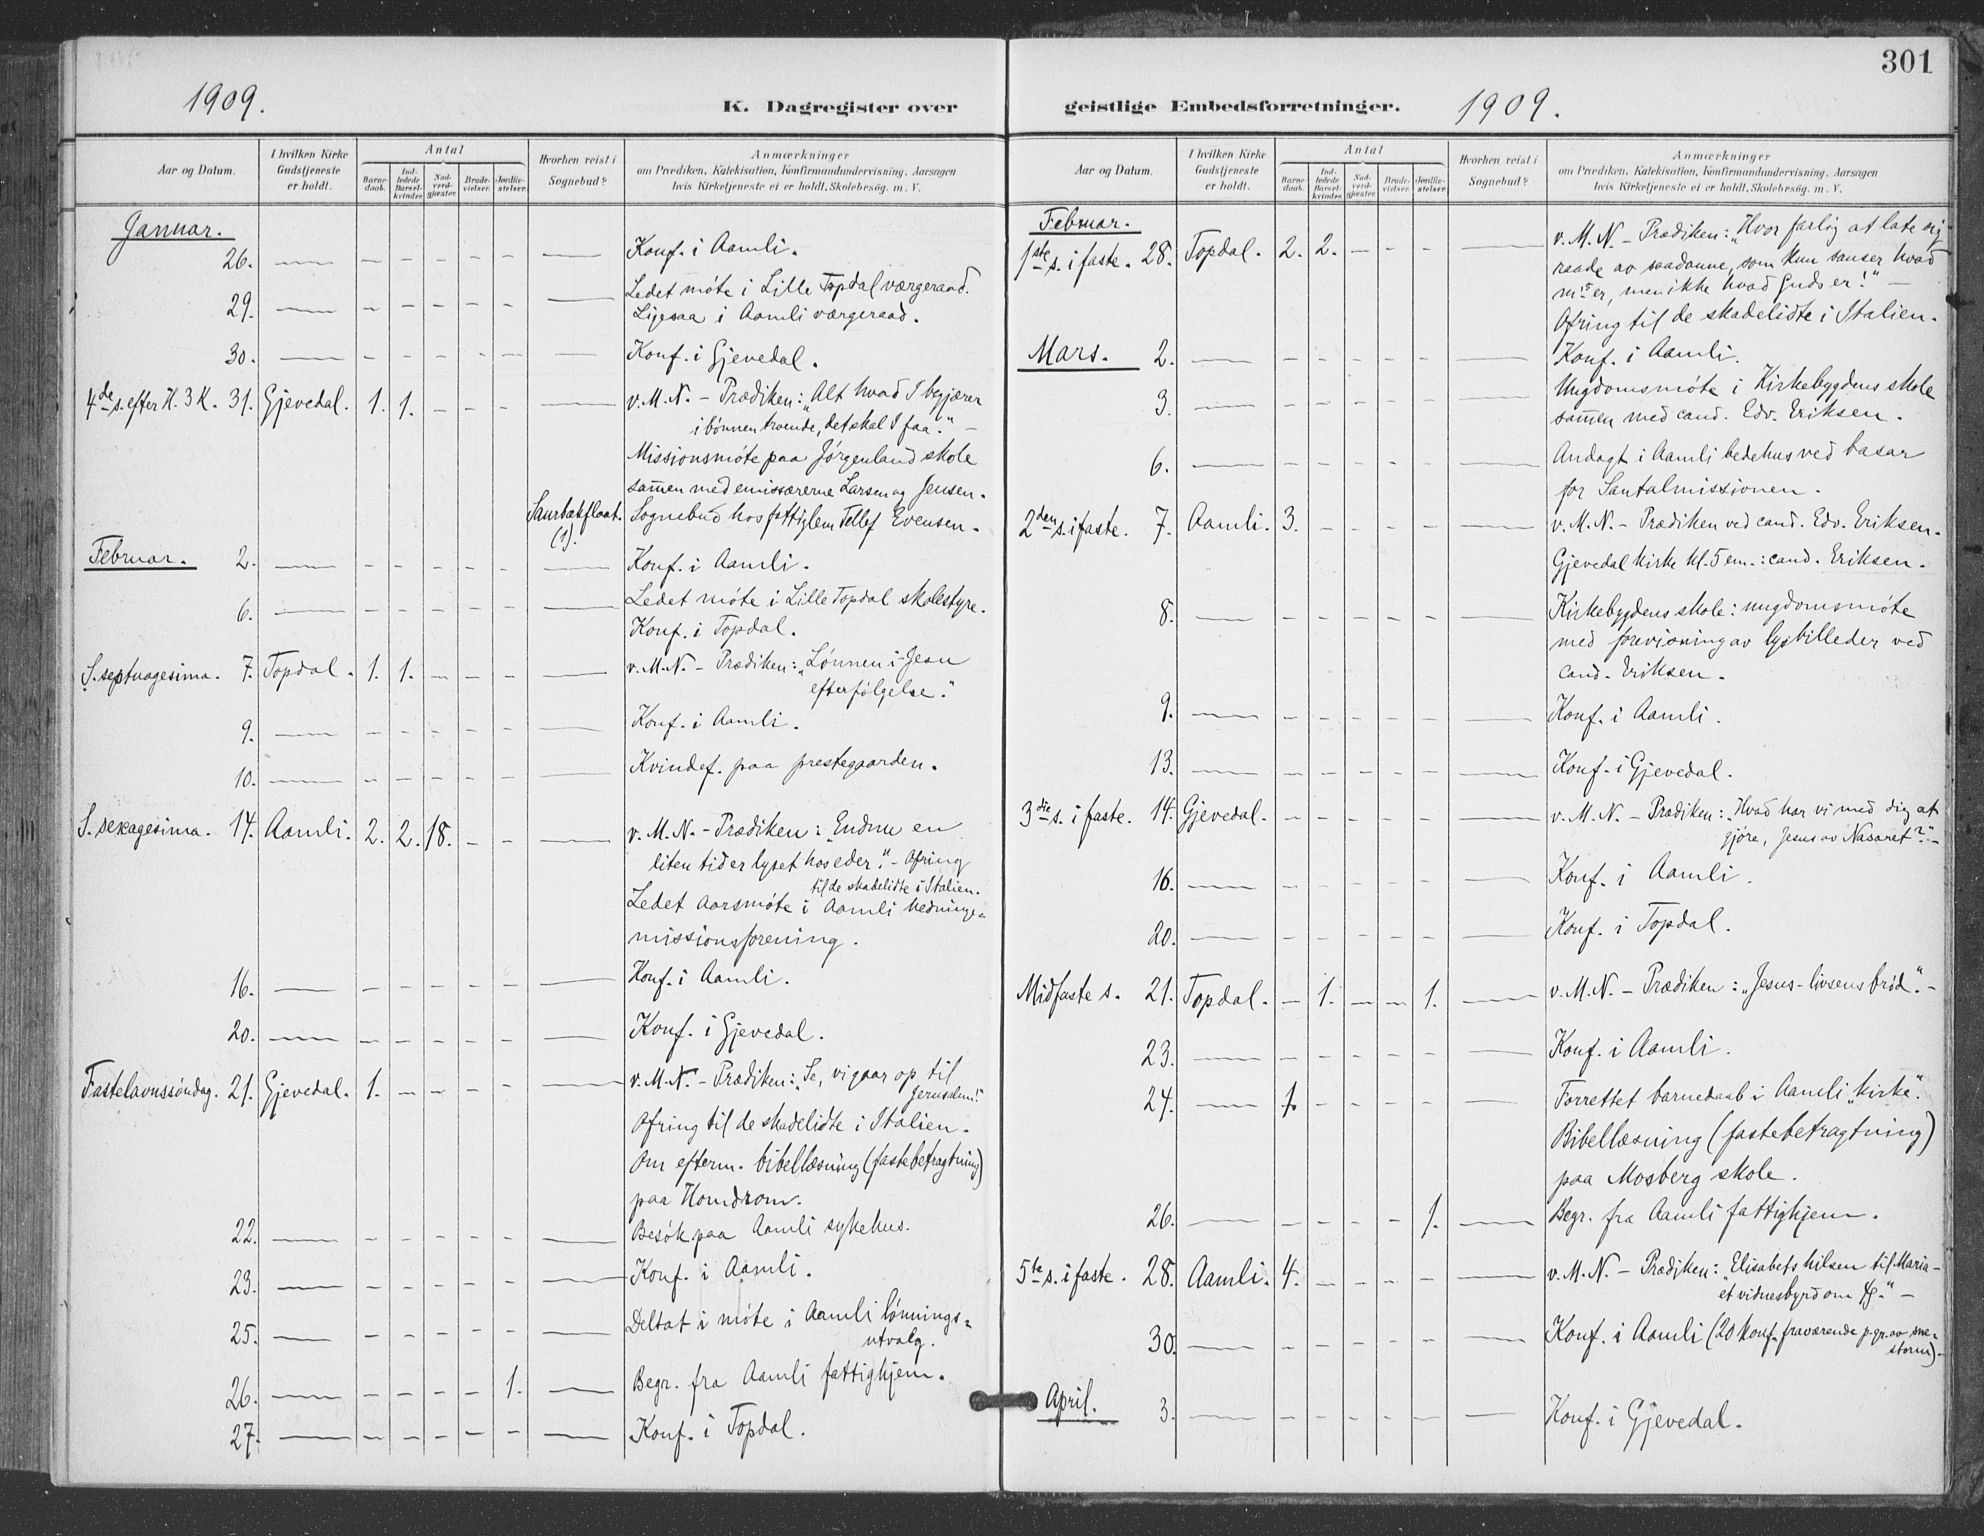 1909.
K. Dagregister over
Aar og Datum.
I hvilken Kirke Gudstjeneste er holdt.
Antal
Barne-daab.
Ind-ledede Barsel-kvinder.
Nad-verd-gjæster.
Brude-vielser.
Jordfæ-stelser.
Hvorhen reist i Sognebud?
Anmærkninger
om Prædiken, Katekisation, Konfirmandundervisning, Aarsagen
hvis Kirketjeneste ei er holdt, Skolebesøg. m. V.
Januar.
26. — — — — — — — — Konf. i Aamli.
29. — — — — — — — Ledet møte i Lille Topdal værgeraad.
Ligesaa i Aamli værgeraad.
30. — — — — — — — Konf. i Gjevedal.
4de s. efter H. 3 K. 31. Gjevedal. 1. 1. — — — — v. M. N. – Prædiken: „Alt hvad I begjærer
i bønnen troende, det skal I faa." –
Missionsmøte paa Jørgenland skole
sam̄en med emissærerne Larsen og Jensen.
Saurbækfloat. (1). Sognebud hos fattiglem Tellef Evensen.
Februar. 2. — — — — — — — Konf. i Aamli.
6. — — — — — — — Ledet møte i Lille Topdal skolestyre.
Konf. i Topdal.
S. septuagesima. 7. Topdal. 1. 1. — — — — v. M. N. – Prædiken: „Lønnen i Jesu
efterfølgelse."
9. — — — — — — — Konf. i Aamli.
10. — — — — — — — Kvindef. paa prestegaarden.
S. sexagesima. 14. Aamli. 2. 2. 18. — — — v. M. N. – Prædiken: „Endnu en
liten tid er lyset hos eder." – Ofring
til de skadelidte i Italien.
Ledet aarsmøte i Aamli hedninge=
missionsforening.
16. — — — — — — — Konf. i Aamli.
20. — — — — — — — Konf. i Gjevedal.
Fastelavnssøndag. 21. Gjevedal. 1. — — — — — v. M. N. – Prædiken: „Se, vi gaar op til
Jerusalem!"
Ofring til de skadelidte i Italien.
Om efterm. bibellæsning (fastebetragtning)
paa Homdrom.
22. — — — — — — — Besøk paa Aamli sykehus.
23. — — — — — — — Konf. i Aamli.
25. — — — — — — — Deltat i møte i Aamli lønnings=
utvalg.
26. — — — — — 1. — Begr. fra Aamli fattighjem.
27. — — — — — — — Konf. i Topdal.
301
geistlige Embedsforretninger.
1909.
Aar og Datum.
I hvilken Kirke Gudstjeneste er holdt.
Antal
Barne-daab.
Ind-ledede Barsel-kvinder.
Nad-verd-gjæster.
Brude-vielser.
Jordfæ-stelser.
Hvorhen reist i Sognebud?
Anmærkninger
om Prædiken, Katekisation, Konfirmandundervisning, Aarsagen
hvis Kirketjeneste ei er holdt, Skolebesøg. m. V.
Februar.
1ste s. i faste. 28. Topdal. 2. 2. — — — — v. M. N. – Prædiken: „Hvor farlig at late sig
raade av saadanne, som kun sanser hvad
m's er, men ikke hvad Guds er!" –
Ofring til de skadelidte i Italien.
Mars. 2. — — — — — — — Konf. i Aamli.
3. — — — — — — — Ungdomsmøte i Kirkebygdens skole
sam̄en med cand. Edv. Eriksen.
6. — — — — — — — Andagt i Aamli bedehus ved basar
for Santalmissionen.
2den s. i faste. 7. Aamli. 3. — — — — — v. M. N. – Prædiken ved cand. Edv. Eriksen.
Gjevedal kirke kl. 5 em.: cand. Eriksen.
8. — — — — — — — Kirkebygdens skole: ungdomsmøte
med forevisning av lysbilleder ved
cand. Eriksen.
9. — — — — — — — Konf. i Aamli.
13. — — — — — — — Konf. i Gjevedal.
3die s. i faste. 14. Gjevedal. — — — — — — v. M. N. – Prædiken: „Hvad har vi med dig at
gjøre, Jesus av Nasaret?" –
16. — — — — — — — Konf. i Aamli.
20. — — — — — — — Konf. i Topdal.
Midfaste s. 21. Topdal. — 1. — — 1. — v. M. N. – Prædiken: „Jesus – livsens brød." –
23. — — — — — — — Konf. i Aamli.
24. — 1. — — — — — Forrettet barnedaab i Aamli „kirke".
Bibellæsning (fastebetragtning)
paa Mosberg skole.
26. — — — — — 1. — Begr. fra Aamli fattighjem.
5te s. i faste. 28. Aamli. 4. — — — — — v. M. N. – Prædiken: „Elisabets hilsen til Maria –
et vidnesbyrd om
30. — — — — — — — Konf. i Aamli (20 konf. fraværende p. gr. av sne=
storm).
April. 3. — — — — — — — Konf. i Gjevedal.